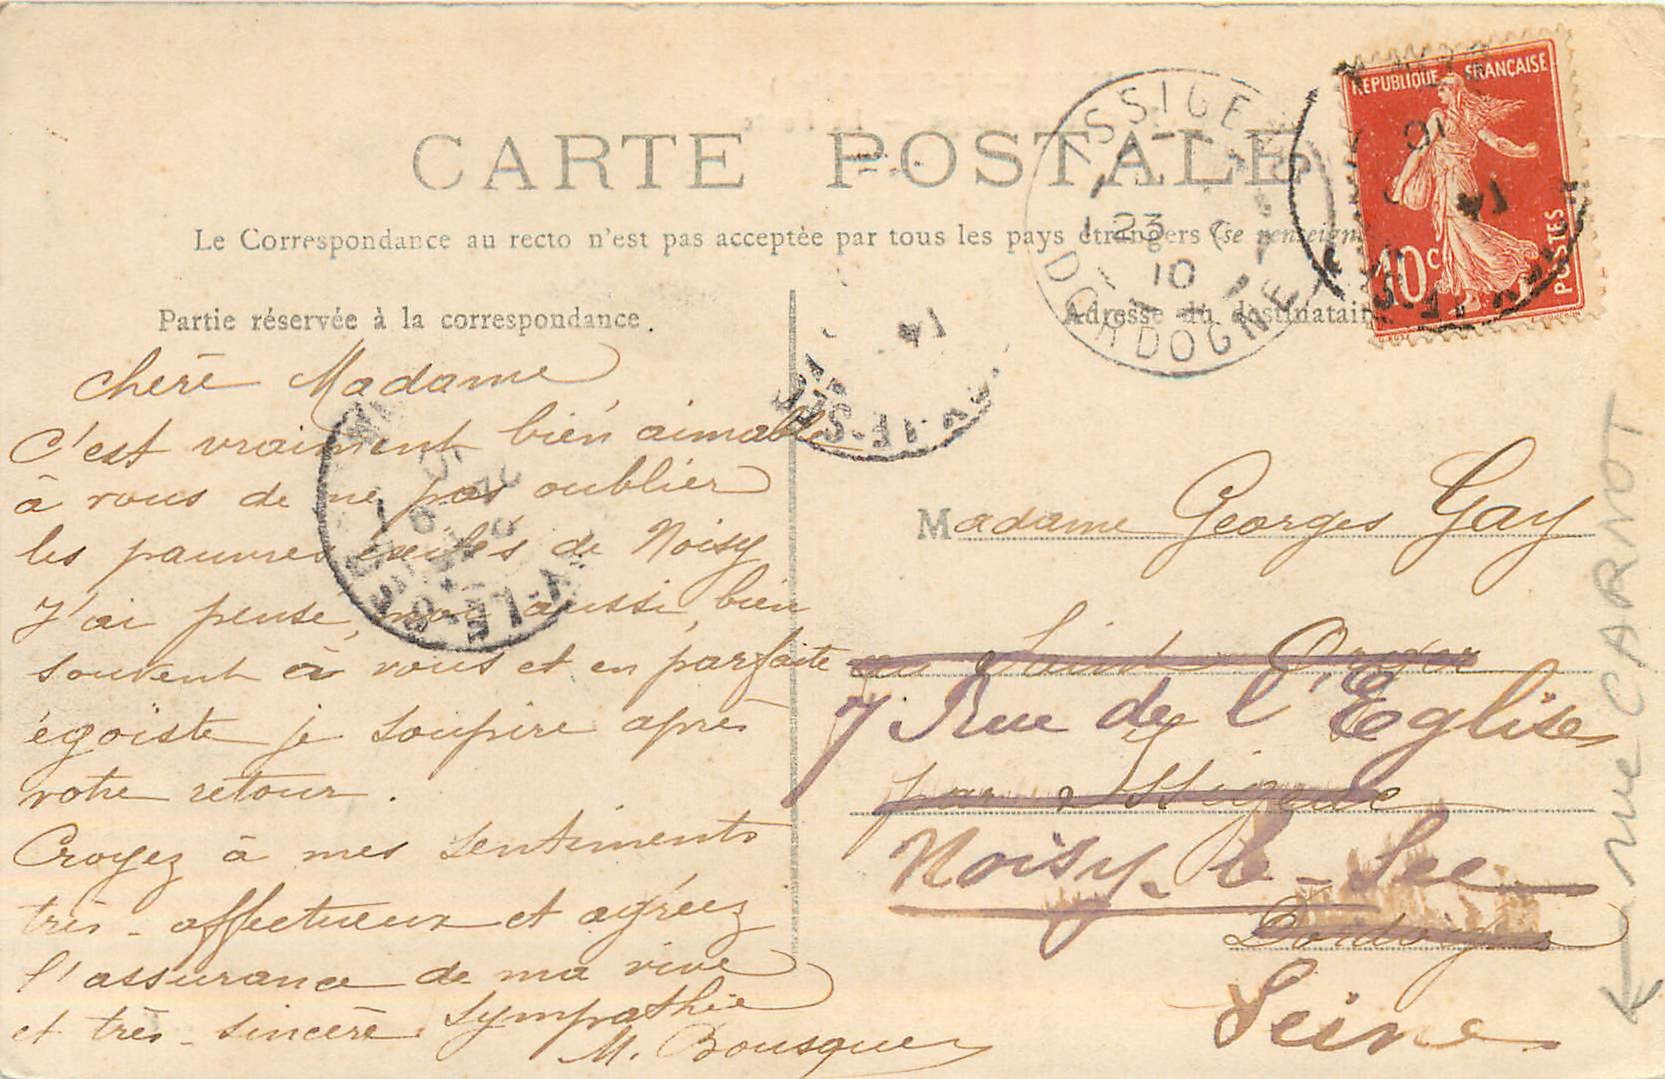 CARTE POSTALE
Le Correspondance au recto n'est pas acceptée par tous les pays étrangers (se renseign
Partie réservée à la correspondance.
Adresse du destinatair
REPUBLIQUE FRANÇAISE
10c
POSTES
ISSIGE
23
10
DORDOGNE
chère Madame
C'est vraiment bien aimable
à vous de ne pas oublier
les pauvres exilés de Noisy
J'ai pensé, moi aussi, bien
souvent à vous et en parfaite
égoïste je soupire après
votre retour.
Croyez à mes sentiments
très-affectueux et agréez
l'assurance de ma vive
et très-sincère sympathie
M. Bousquet
Madame Georges Gay
Saint
7 Rue de l'Eglise
par Issigeac
Noisy-le-Sec
Dordogne
Seine
rue CARNOT